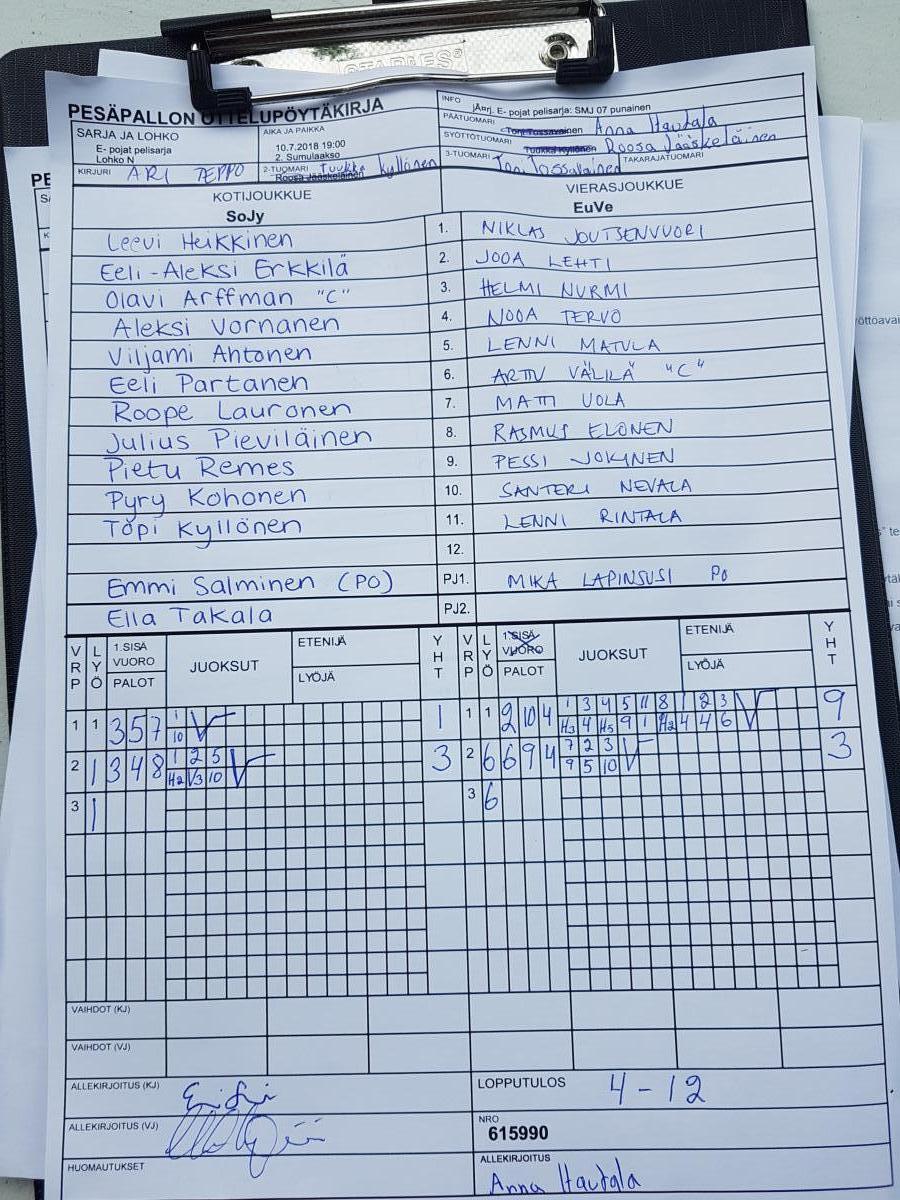 STAPLES®
PESÄPALLON OTTELUPÖYTÄKIRJA
SARJA JA LOHKO
E- pojat pelisarja
Lohko N
AIKA JA PAIKKA
10.7.2018 19:00
2. Sumulaakso
INFO
jÄnj. E- pojat pelisarja: SMJ 07 punainen
PÄÄTUOMARI Toni Tossavainen Anna Hautala
SYÖTTÖTUOMARI Tuukka Kyllönen Roosa Jääskeläinen
KIRJURI ARI TEPPO
2-TUOMARI Tuukka Kyllönen
Roosa Jääskeläinen
3-TUOMARI Toni Tossavainen TAKARAJATUOMARI
KOTIJOUKKUE VIERASJOUKKUE
SoJy EuVe
Leevi Heikkinen 1. NIKLAS JOUTSENVUORI
Eeli-Aleksi Erkkilä 2. JOOA LEHTI
Olavi Arffman "C" 3. HELMI NURMI
Aleksi Vornanen 4. NOOA TERVO
Viljami Ahtonen 5. LENNI MATULA
Eeli Partanen 6. ARTTU VÄLILÄ "C"
Roope Lauronen 7. MATTI UOLA
Julius Pieviläinen 8. RASMUS ELONEN
Pietu Remes 9. PESSI JOKINEN
Pyry Kohonen 10. SANTERI NEVALA
Topi Kyllönen 11. LENNI RINTALA
12.
Emmi Salminen (PO) PJ1. MIKA LAPINSUSI PO
Ella Takala PJ2.
VRP LYÖ 1.SISÄ VUORO PALOT JUOKSUT ETENIJÄ LYÖJÄ YHT VRP LYÖ 1.SISÄ VUORO PALOT JUOKSUT ETENIJÄ LYÖJÄ YHT
1 1 3 5 7 1 1 1 1 2 10 4 1 3 4 5 11 8 1 2 3 9
10 H3 4 H5 9 1 H2 4 4 6
2 1 3 4 8 1 2 5 3 2 6 6 9 4 7 2 3 3
H2 V3 10 9 5 10
3 1 3 6
VAIHDOT (KJ)
VAIHDOT (VJ)
ALLEKIRJOITUS (KJ) LOPPUTULOS 4 - 12
ALLEKIRJOITUS (VJ) NRO
615990
HUOMAUTUKSET ALLEKIRJOITUS
Anna Hautala